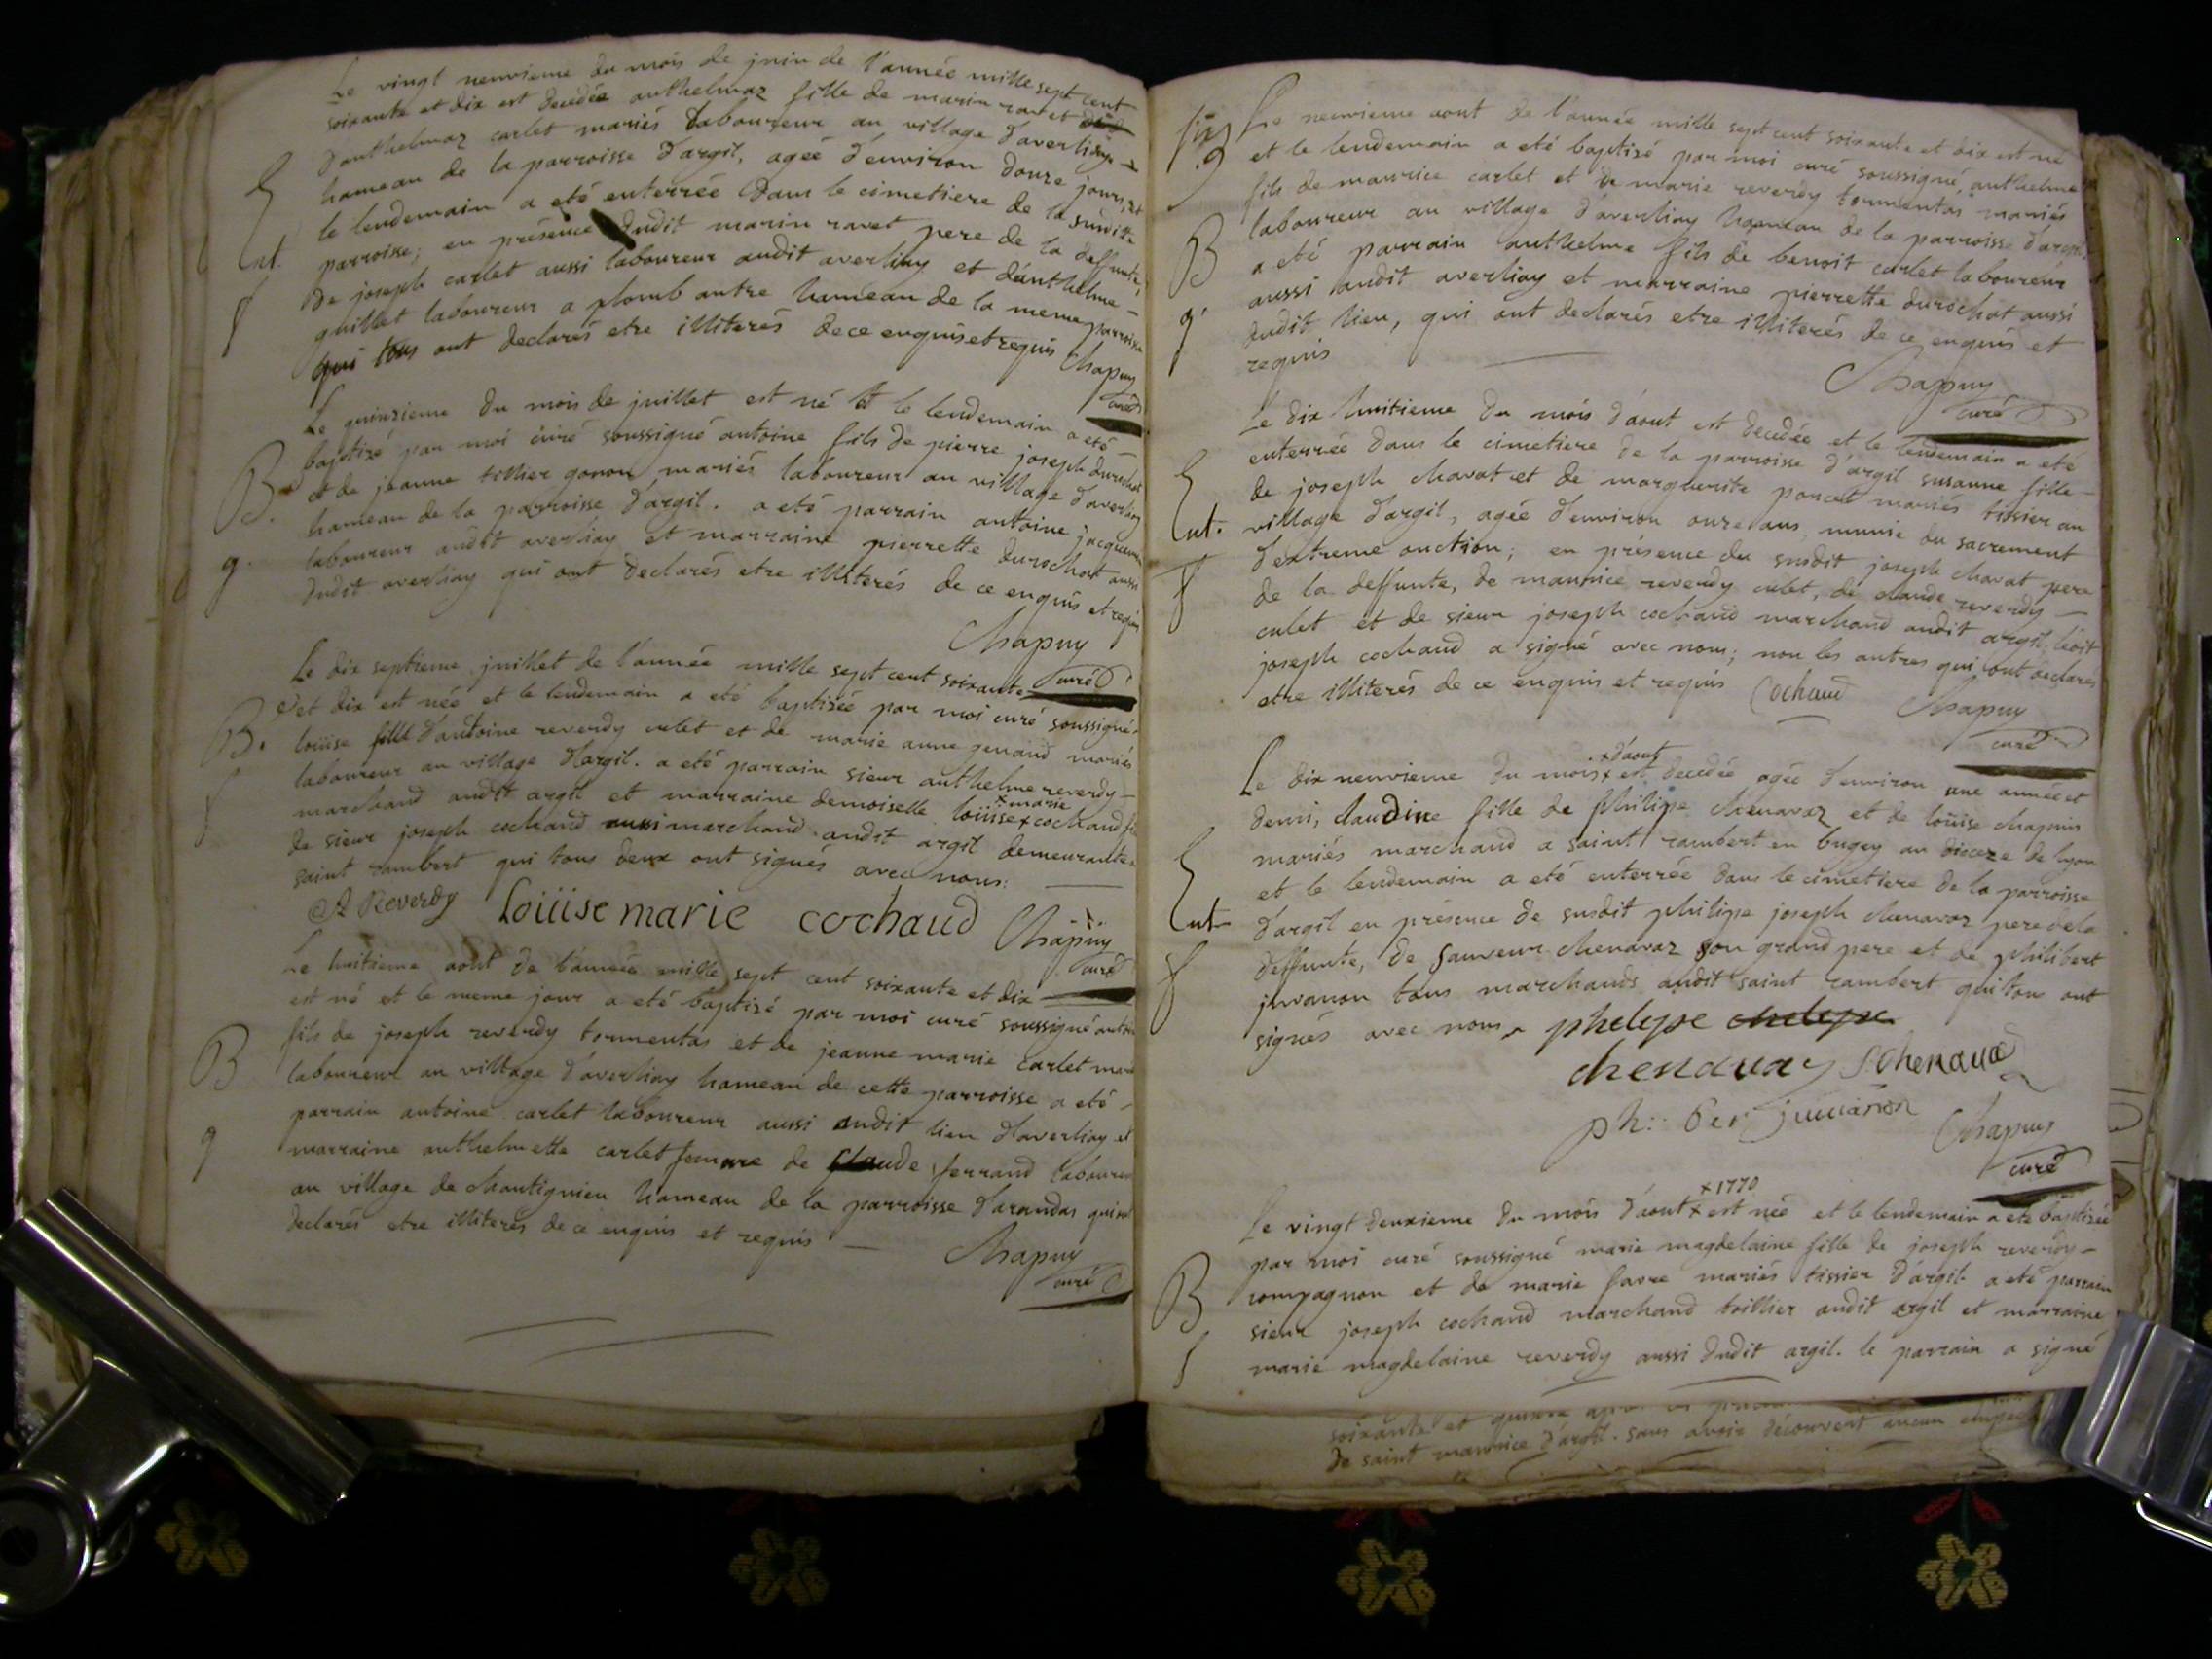 Le vingt neuvieme du mois de juin de l'année mille sept cent
soixante et dix est decedée anthelmaz fille de marin ravet
d'anthelmaz carlet mariés laboureur au village d'averliay
hameau de la parroisse d'argil, agée d'environ douze jours, et
le lendemain a eté enterrée dans le cimetiere de la susditte
Ent. parroisse; en présence dudit marin ravet pere de la deffunte,
de joseph carlet aussi laboureur audit averliay et d'anthelme
f guillet laboureur a plomb autre hameau de la meme parroisse
qui tous ont declarés etre illiterés de ce enquis et requis Chapuy
curé
Le quinzieme du mois de juillet est né et le lendemain a eté
baptizé par moi curé soussigné antoine fils de pierre joseph durochat
B. et de jeanne tillier gonon mariés laboureur au village d'averliay
hameau de la parroisse d'argil. a eté parrain antoine jacquemin
g. laboureur audit averliay et marraine pierrette durochat aussi
dudit averliay qui ont declarés etre illiterés de ce enquis et requis
Chapuy
curé
Le dix septieme juillet de l'année mille sept cent soixante
et dix est née et le lendemain a eté baptizée par moi curé soussigné
B. loüise fille d'antoine reverdy culet et de marie anne genand mariés
laboureur au village d'argil. a eté parrain sieur anthelme reverdy
x marie
f marchand audit argil et marraine demoiselle loüise x cochaud
de sieur joseph cochaud aussi marchand audit argil demeurante
saint rambert qui tous deux ont signés avec nous.
A Reverdy Loüise marie cochaud Chapuy
curé
Le huitieme aout de l'année mille sept cent soixante et dix
est né et le meme jour a eté baptizé par moi curé soussigné
B fils de joseph reverdy tormentas et de jeanne marie carlet
laboureur au village d'averliay hameau de cette parroisse a eté
parrain antoine carlet laboureur aussi audit lieu d'averliay et
g marraine anthelmette carlet femme de claude ferrand laboureur
au village de chantignieu hameau de la parroisse d'arandas
declarés etre illiterés de ce enquis et requis
Chapuy
curé
Le neuvieme aout de l'année mille sept cent soixante et dix est né
et le lendemain a eté baptizé par moi curé soussigné, anthelme
fils de maurice carlet et de marie reverdy tormentas mariés
laboureur au village d'averliay hameau de la parroisse d'argil,
B a eté parrain anthelme fils de benoit carlet laboureur
aussi audit averliay et marraine pierrette durochat aussi
g dudit lieu, qui ont declarés etre illiterés de ce enquis et
requis
Chapuy
curé
Le dix huitieme du mois d'aout est decedée et le lendemain a eté
enterrée dans le cimetiere de la parroisse d'argil susanne fille
de joseph chavat et de marguerite poncet mariés tissier au
Ent. village d'argil, agée d'environ onze ans, munie du sacrement
d'extreme onction; en présence du susdit joseph chavat pere
f de la deffunte, de maurice reverdy culet, de claude reverdy
culet et de sieur joseph cochaud marchand audit argil; ledit
joseph cochaud a signé avec nous; non les autres qui ont declarés
etre illiterés de ce enquis et requis Cochaud Chapuy
curé
x d'aout
Le dix neuvieme du mois x est decedée agée d'environ une année et
demi, claudine fille de philipe chenavaz et de loüise chapuis
mariés marchand a saint rambert en bugey au diocéze de lyon
et le lendemain a eté enterrée dans le cimetiere de la parroisse
Ent d'argil en présence de susdit philipe joseph chenavaz pere de la
deffunte, de sauveur chenavaz son grand pere et de philibert
f juvanon tous marchands audit saint rambert qui tous ont
signés avec nous. phelype chelype
chenavaz S chenavaz
ph: ber juvanon Chapuy
curé
x 1770
Le vingt deuxieme du mois d'aout x est née et le lendemain a eté baptizée
par moi curé soussigné marie magdelaine fille de joseph reverdy
B compagnon et de marie favre mariés tissier d'argil. a eté parrain
sieur joseph cochaud marchand toillier audit argil et marraine
f marie magdelaine reverdy aussi dudit argil. le parrain a signé
soixante et quinze
de saint maurice d'argil. sans avoir découvert aucun